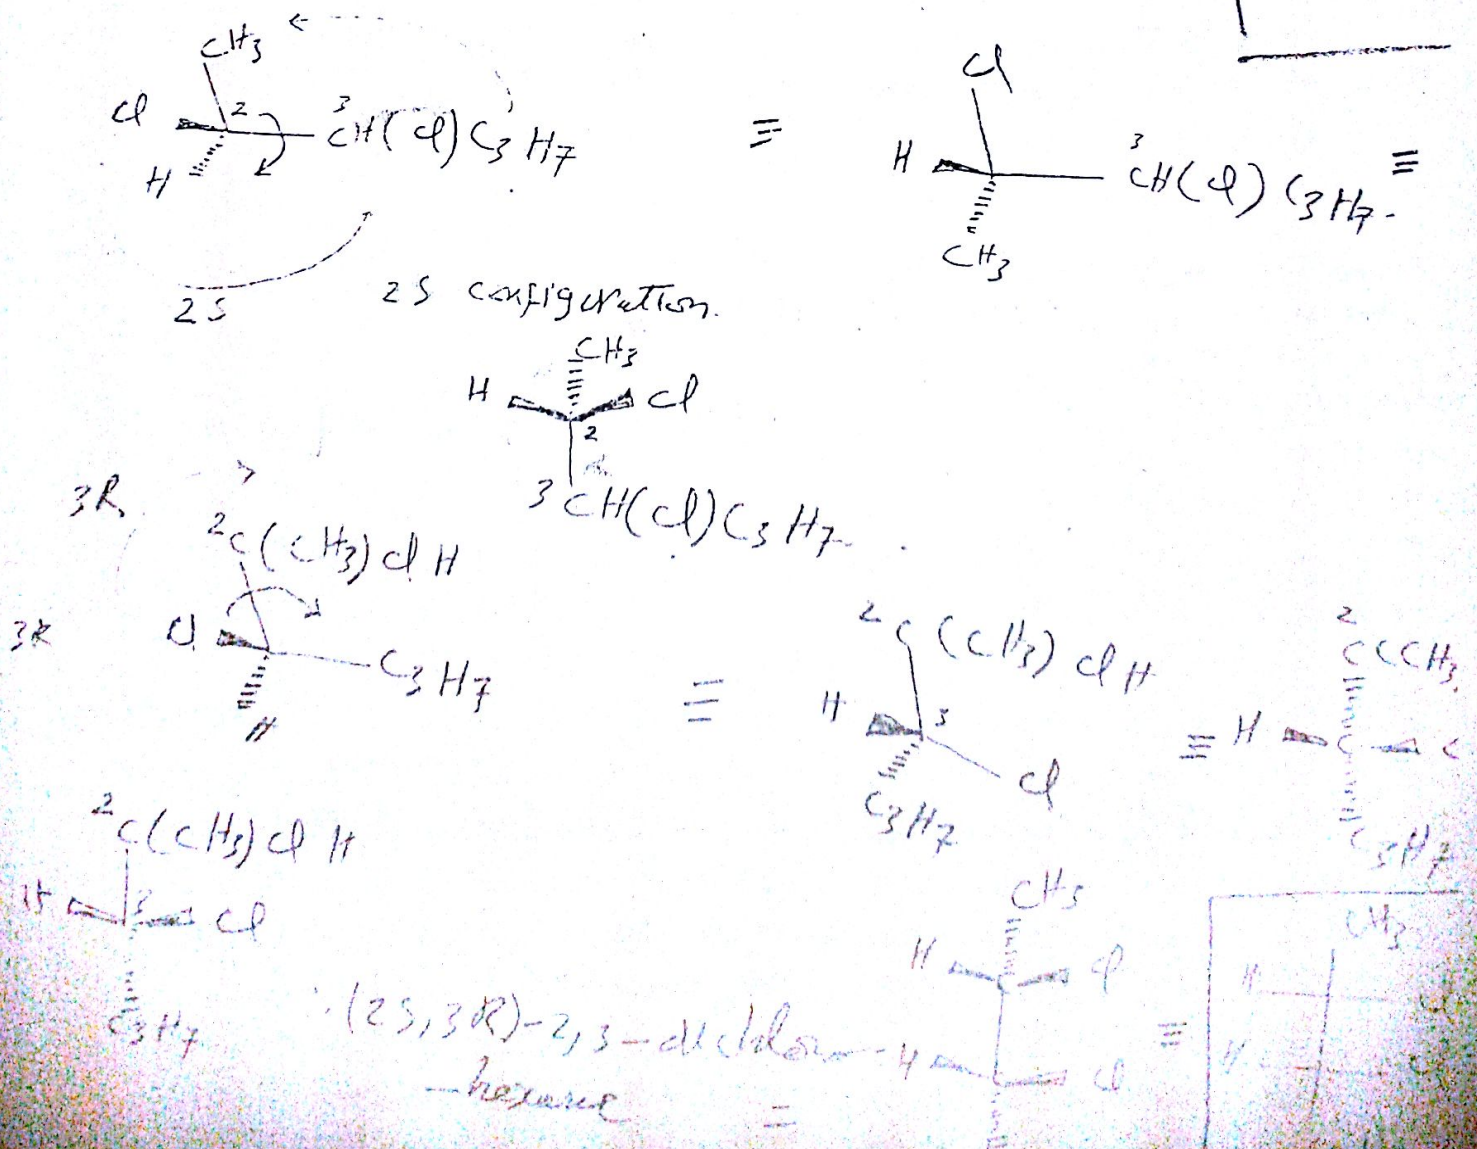 CH3
Cl 2 3 CH(Cl)C3H7 ≡
H
Cl
H 3 CH(Cl)C3H7 ≡
CH3
2S
2S configuration.
CH3
H Cl
2
3 CH(Cl)C3H7
3R
2 C(CH3)Cl H
3R Cl C3H7 ≡
H
2 C(CH3)Cl H
H 3 Cl ≡
C3H7
2 C(CH3
H C C
C3H7
2 C(CH3)Cl H
H 3 Cl
C3H7
CH3
H C Cl ≡
H Cl
∴ (2S,3R)-2,3-dichloro-
-hexane =
CH3
H
H